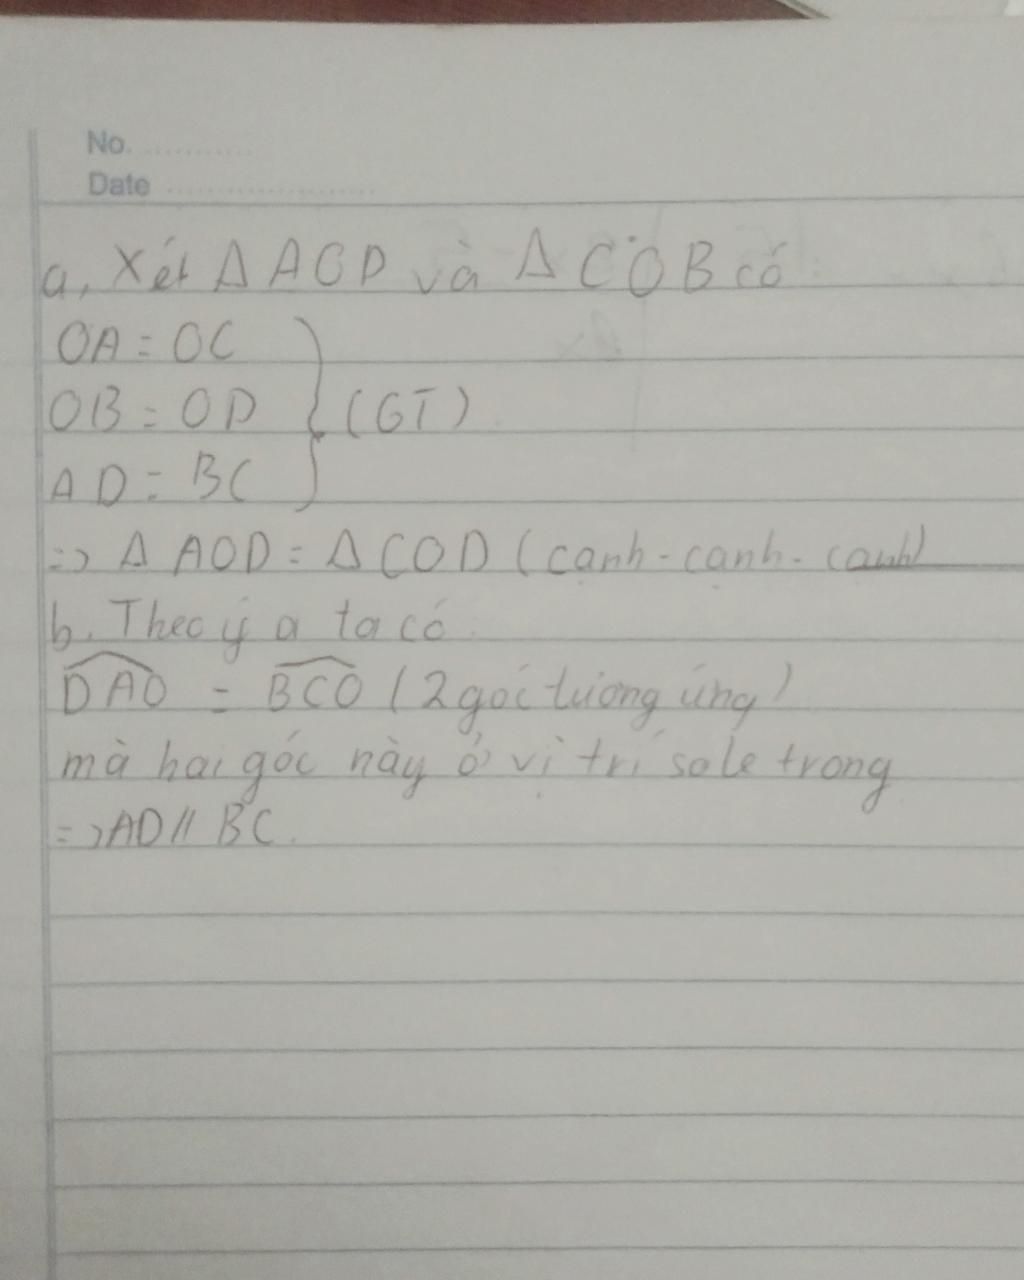 No. ............
Date ......................
a, Xét Δ AOD và Δ COB có:
OA = OC
OB = OD } (GT)
AD = BC
=> Δ AOD = Δ COD (cạnh - cạnh - cạnh)
b. Theo ý a ta có
DAO = BCO (2 góc tương ứng)
mà hai góc này ở vị trí so le trong
=> AD // BC.